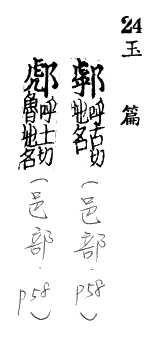 24
玉篇
呼古切地名（邑部·p58）
呼土切魯地名（邑部·p58）